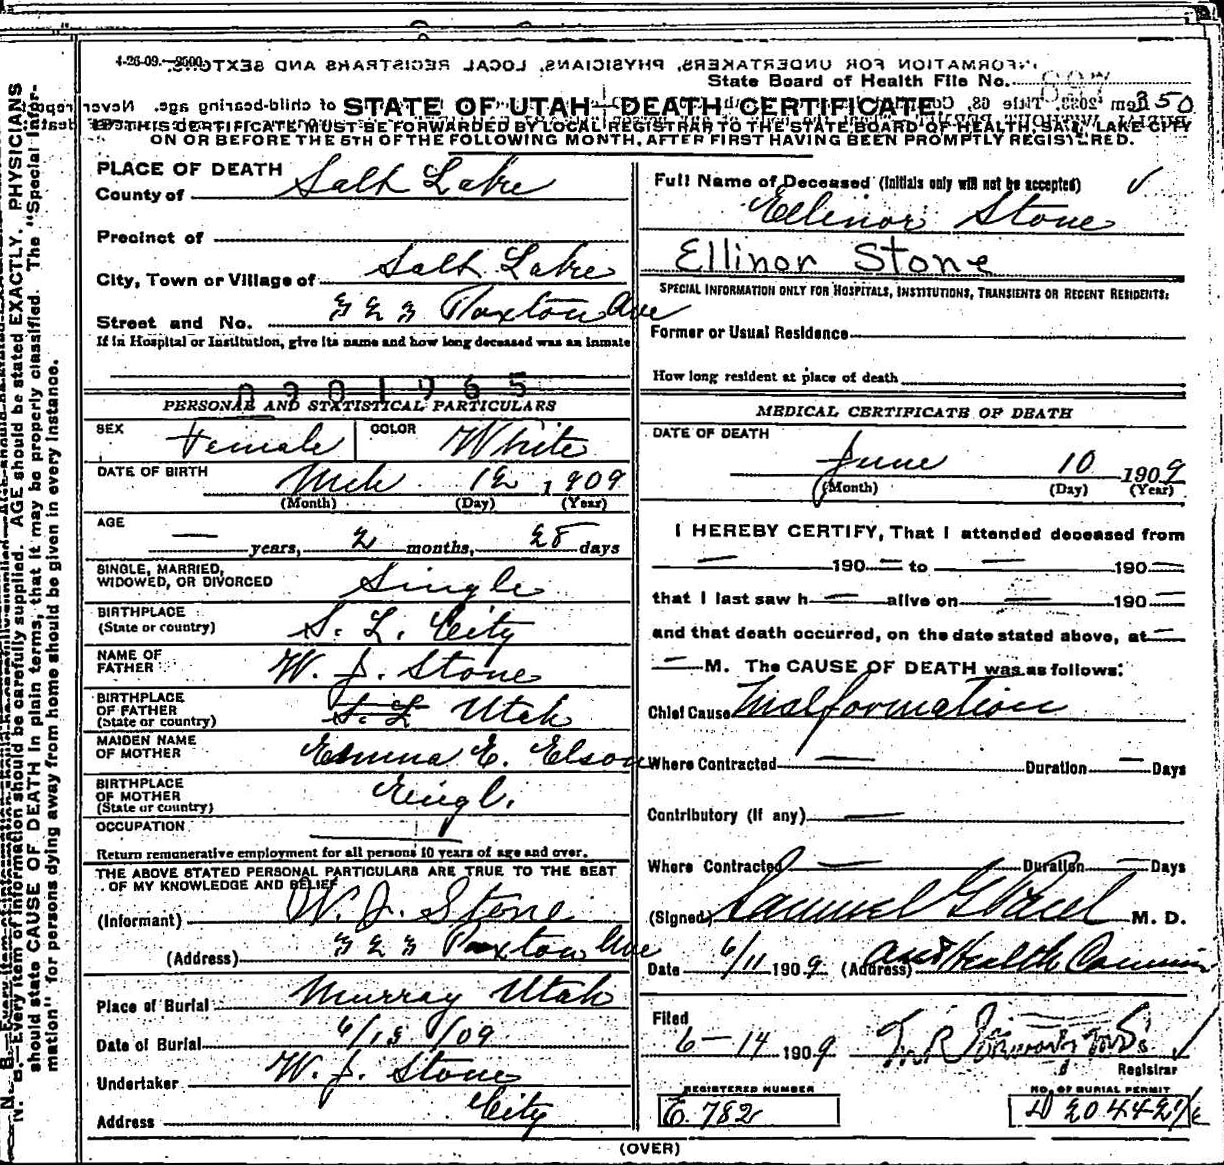 4-26-09.—2500
INFORMATION FOR UNDERTAKERS, PHYSICIANS, LOCAL REGISTRARS AND SEXTONS.
State Board of Health File No.
350
STATE OF UTAH—DEATH CERTIFICATE
THIS CERTIFICATE MUST BE FORWARDED BY LOCAL REGISTRAR TO THE STATE BOARD OF HEALTH, SALT LAKE CITY
ON OR BEFORE THE 5TH OF THE FOLLOWING MONTH, AFTER FIRST HAVING BEEN PROMPTLY REGISTERED.
PLACE OF DEATH
County of Salt Lake
Precinct of
City, Town or Village of Salt Lake
Street and No. 323 Paxton Ave
If in Hospital or Institution, give its name and how long deceased was an inmate
PERSONAL AND STATISTICAL PARTICULARS
SEX Female COLOR White
DATE OF BIRTH Mch 12, 1909
(Month) (Day) (Year)
AGE
— years, 2 months, 28 days
SINGLE, MARRIED,
WIDOWED, OR DIVORCED Single
BIRTHPLACE
(State or country) S. L. City
NAME OF
FATHER W. J. Stone
BIRTHPLACE
OF FATHER
(State or country) S. L. Utah
MAIDEN NAME
OF MOTHER Emma E. Elson
BIRTHPLACE
OF MOTHER
(State or country) Engl.
OCCUPATION
Return remunerative employment for all persons 10 years of age and over.
THE ABOVE STATED PERSONAL PARTICULARS ARE TRUE TO THE BEST
OF MY KNOWLEDGE AND BELIEF
(Informant) W. J. Stone
(Address) 323 Paxton Ave
Place of Burial Murray Utah
Date of Burial 6/13/09
Undertaker W. J. Stone
Address City
Full Name of Deceased (Initials only will not be accepted)
Ellinor Stone
Ellinor Stone
SPECIAL INFORMATION ONLY FOR HOSPITALS, INSTITUTIONS, TRANSIENTS OR RECENT RESIDENTS:
Former or Usual Residence
How long resident at place of death
MEDICAL CERTIFICATE OF DEATH
DATE OF DEATH
June 10 1909
(Month) (Day) (Year)
I HEREBY CERTIFY, That I attended deceased from
— 190— to — 190—
that I last saw h— alive on — 190—
and that death occurred, on the date stated above, at —
— M. The CAUSE OF DEATH was as follows:
Chief Cause Malformation
Where Contracted — Duration — Days
Contributory (if any) —
Where Contracted — Duration — Days
(Signed) Samuel G. Paul M. D.
Date 6/11 1909 (Address) Health
Filed
6-14 1909
Registrar
REGISTERED NUMBER
E. 782
NO. OF BURIAL PERMIT
D 20442
(OVER)
N. B.—Every item of information should be carefully supplied. AGE should be stated EXACTLY. PHYSICIANS
should state CAUSE OF DEATH in plain terms, that it may be properly classified. The "Special Infor-
mation" for persons dying away from home should be given in every instance.